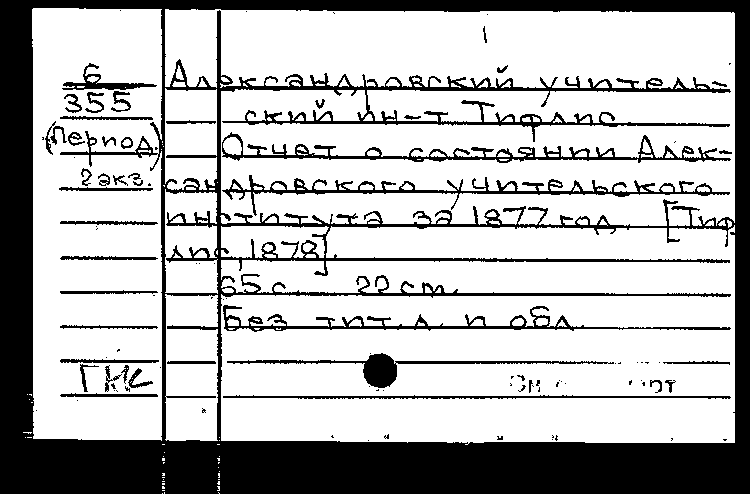 1
6
355
(Период.)
2экз.
Александровский учитель-
ский ин-т Тифлис.
Отчет о состоянии Алек-
сандровского учительского
института за 1877 год. [Тиф
лис, 1878].
65 с. 22 см.
Без тит. л. и обл.
ГНК